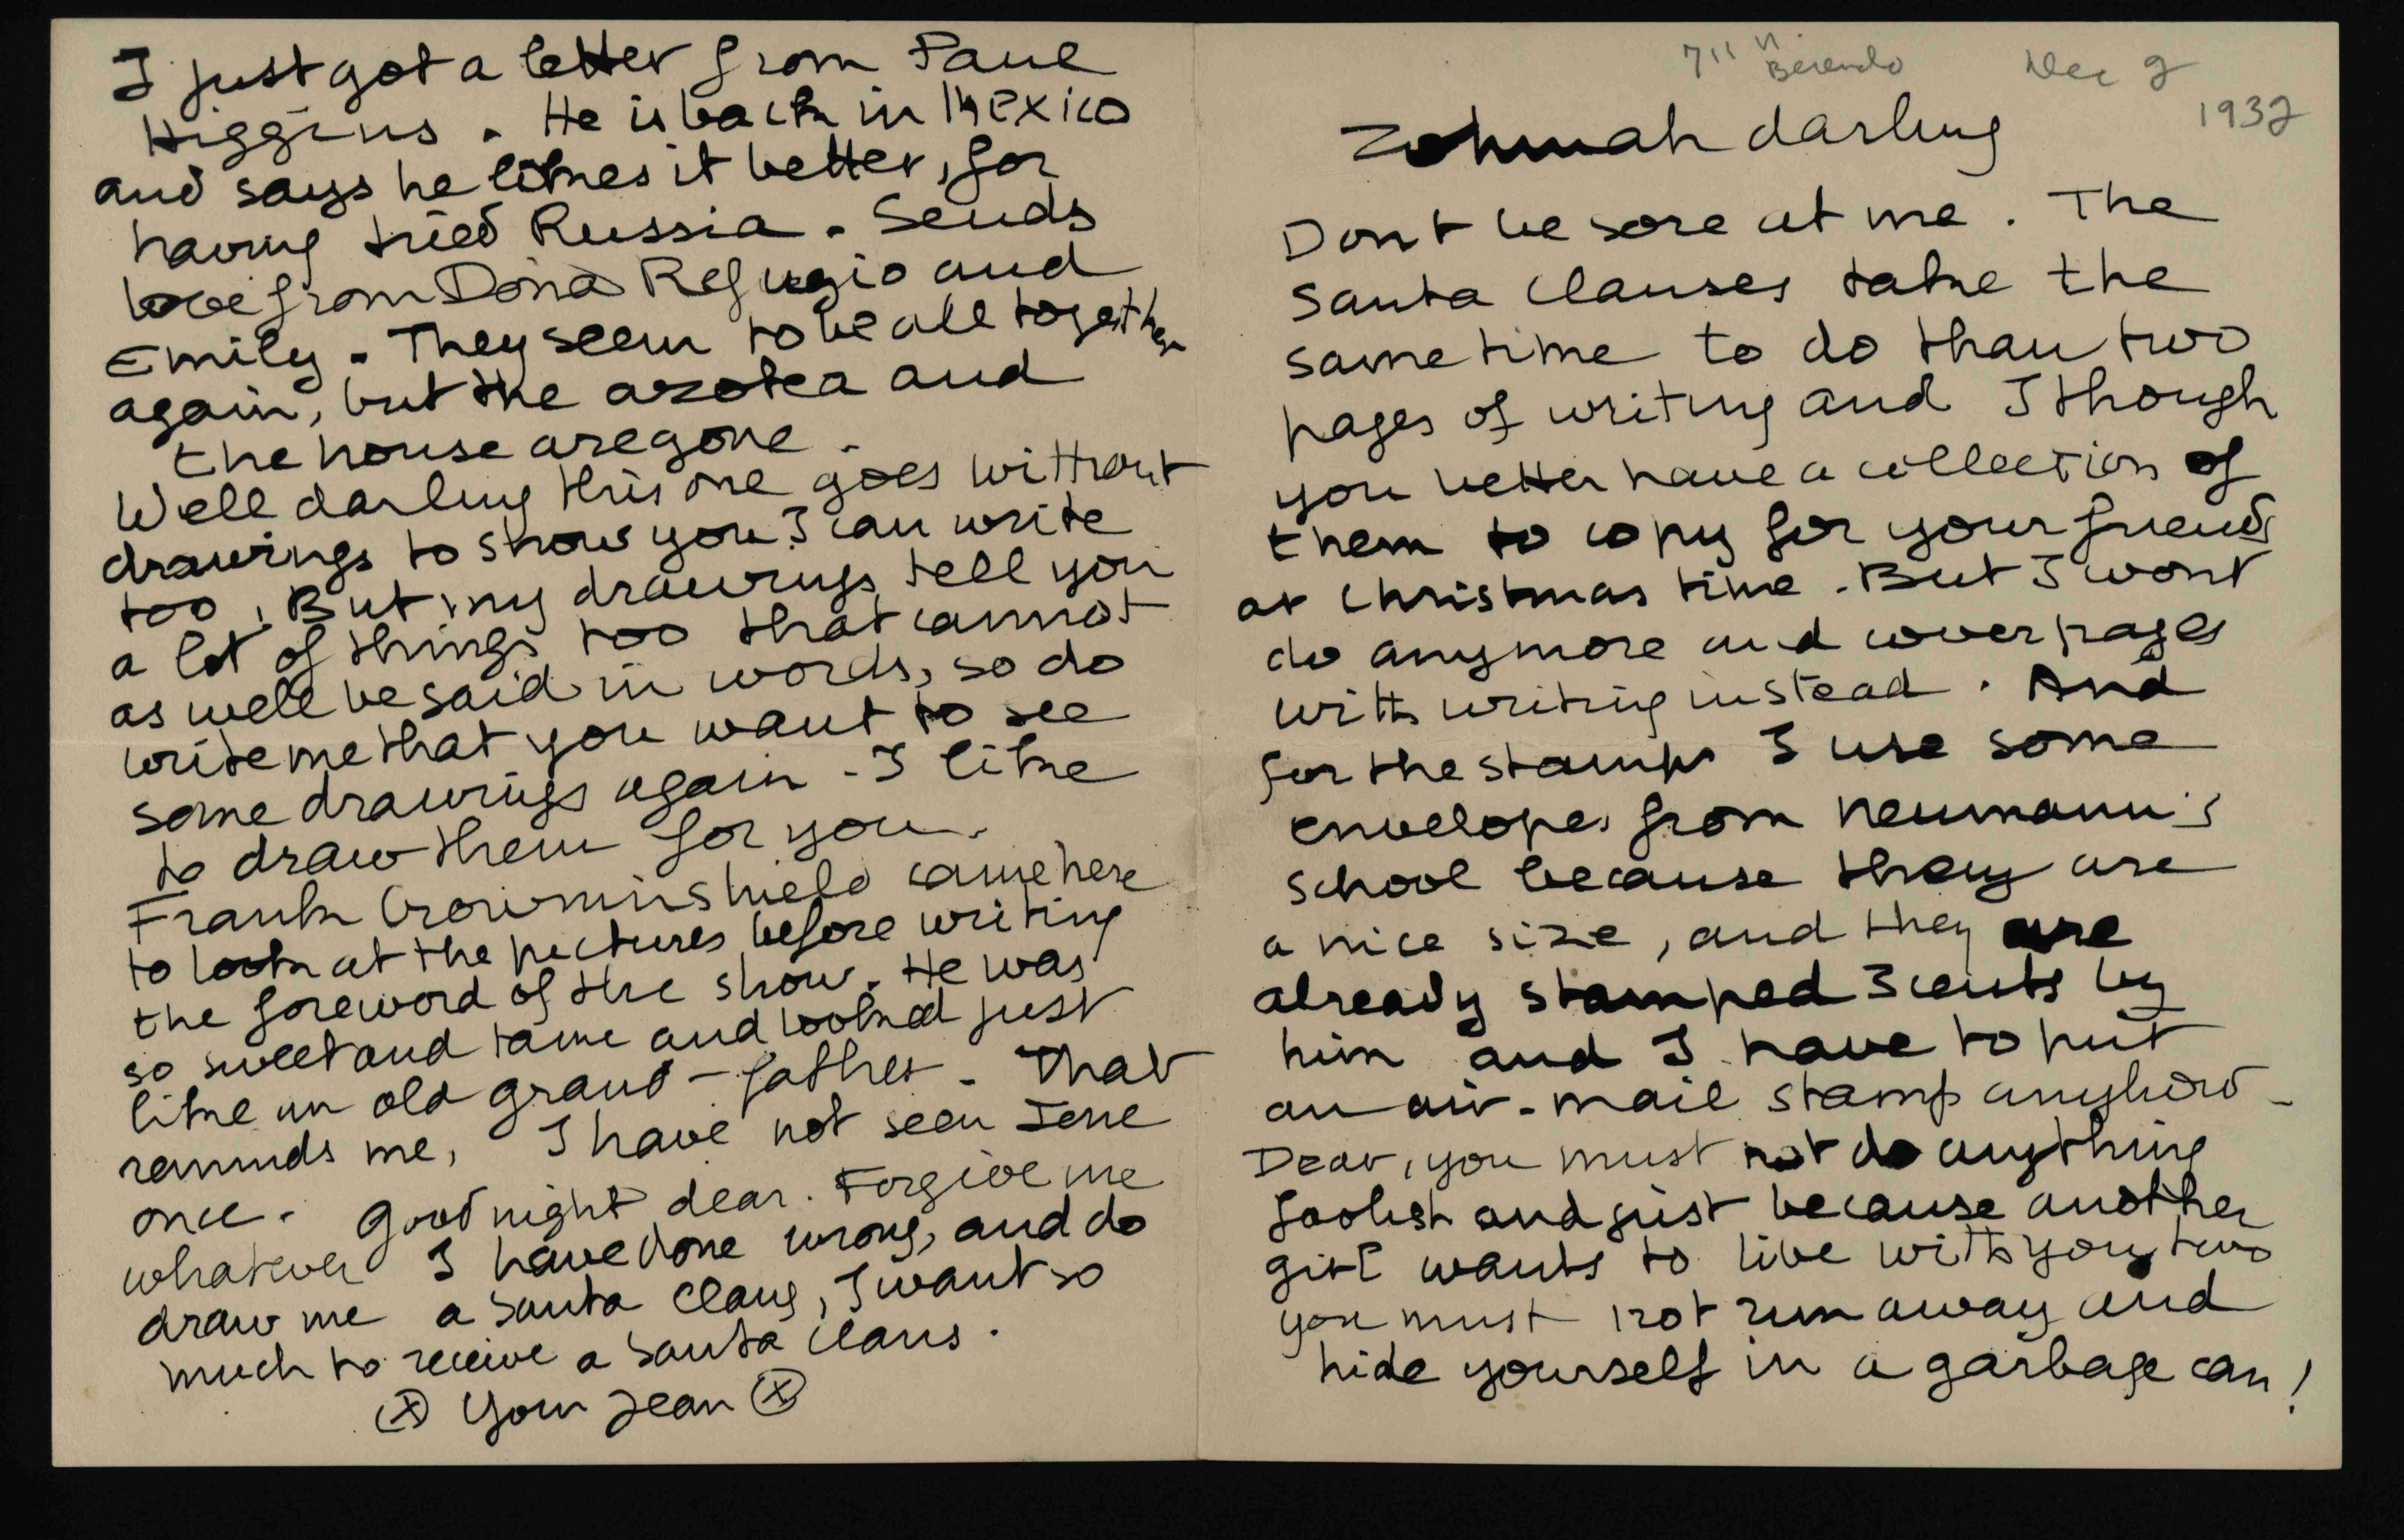 711 N
Berendo
Dec 9
1932
Zohmah darling
Dont be sore at me. The
Santa Clauses take the
same time to do than two
pages of writing and I though
you better have a collection of
them to copy for your friends
at Christmas time. But I wont
do anymore and cover pages
with writing instead. And
for the stamps I use some
envelopes from Neumann's
school because they are
a nice size, and they are
already stamped 3 cents by
him and I have to put
an air-mail stamp anyhow -
Dear, you must not do anything
foolish and just because another
girl wants to live with you two
you must not run away and
hide yourself in a garbage can!
I just got a letter from Paul
Higgins. He is back in Mexico
and says he likes it better, for
having tried Russia. Sends
love from Dona Refugio and
Emily. They seem to be all together
again, but the azotea and
the house are gone.
Well darling this one goes without
drawings to show you I can write
too. But my drawings tell you
a lot of things too that cannot
as well be said in words, so do
write me that you want to see
some drawings again - I like
to draw them for you.
Frank Crowninshield came here
to look at the pictures before writing
the foreword of the show. He was
so sweet and tame and looked just
like an old grand-father. That
reminds me, I have not seen Ione
once. Good night dear. Forgive me
whatever I have done wrong, and do
draw me a Santa Claus, I want so
much to receive a Santa Claus.
Your Jean